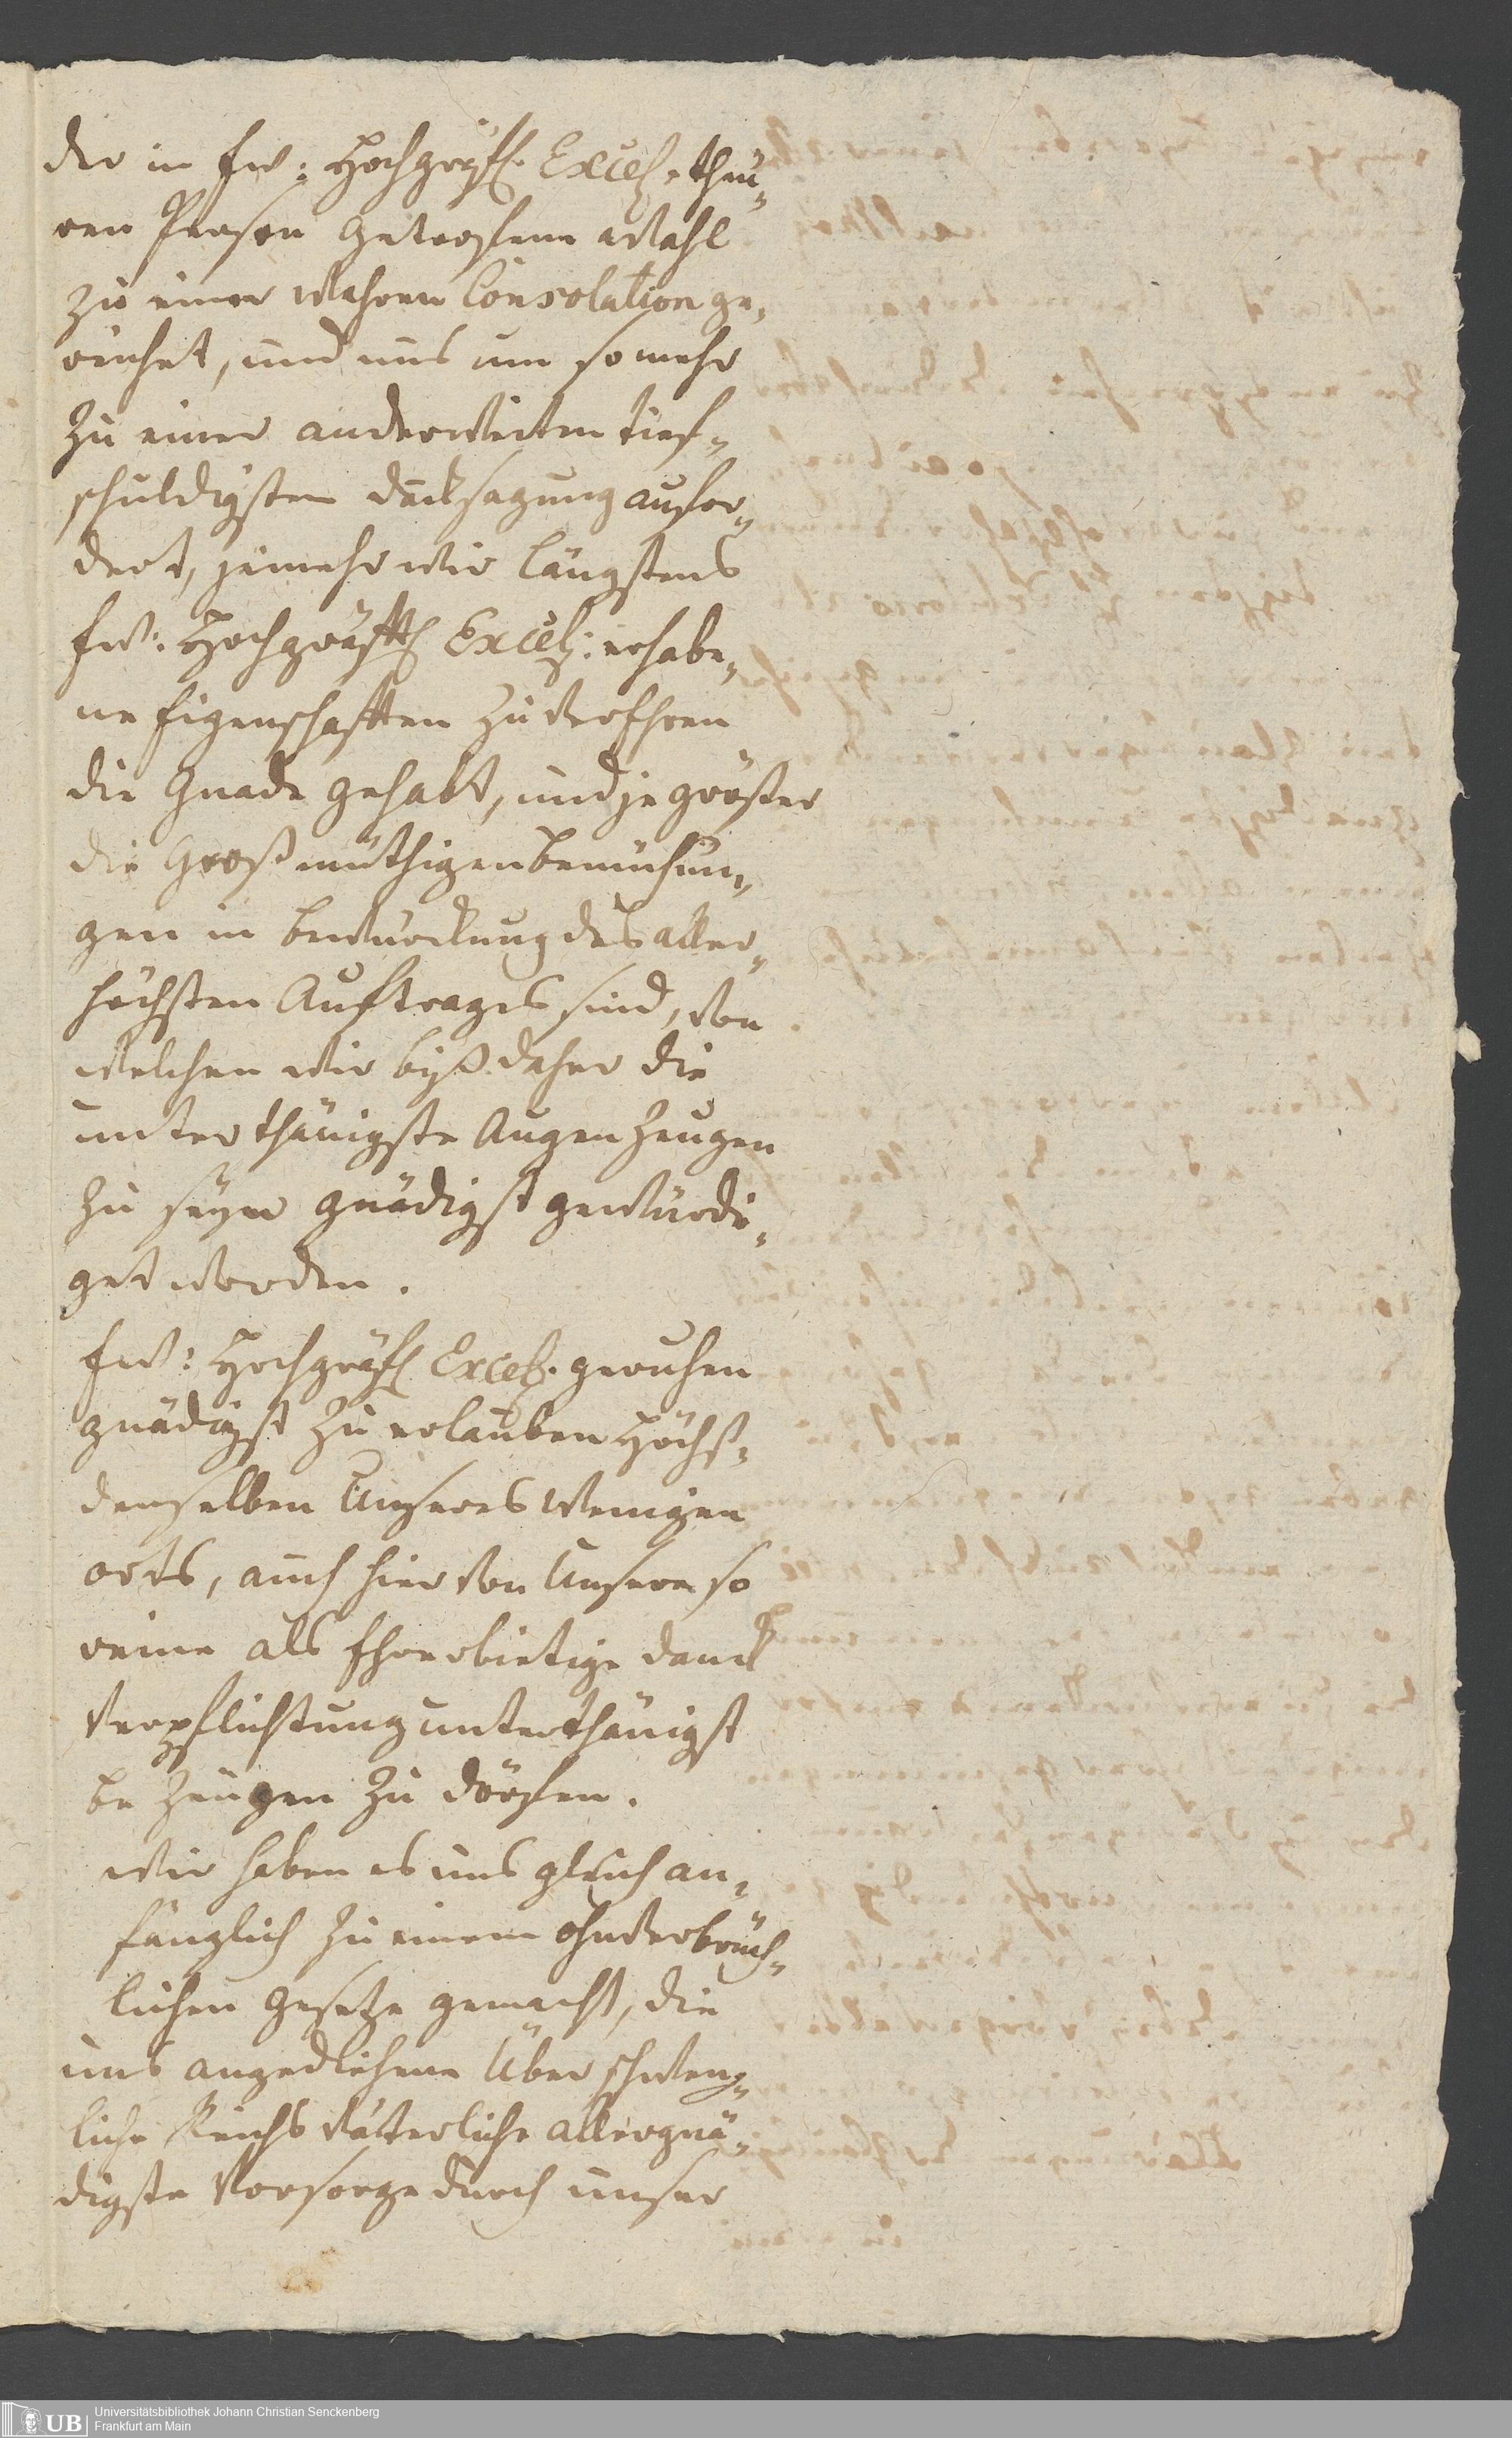 der in Ew: Hochgräfl. Excell. theu„
ren Person getroffene Wahl
zu einer wahren Consolation ge„
reichet, und uns um so mehr
zu einer anderweiten tief„
schuldigsten Dancksagung aufor„
dert, jemehr wir längstens
Ew: Hochgräffl Excell: erhabe„
ne Eigenschafften zu verehren
die Gnade gehabt, und je größer
die Großmüthigen Bemühun„
gen in Bewürckung des aller„
höchsten Auftrages sind, von
welchen wir biß daher die
unterthänigste Augenzeugen
zu seyn gnädigst gewürdi„
get worden.
Ew: Hochgräfl Excell. geruhen
gnädigst zu erlauben Höchst„
denselben Unseres wenigen
orts, auch hier von Unsere so
reine als Ehrerbietige Danck
Verpflichtung unterthänigst
bezeugen zu dörfen.
Wir haben es uns gleich an„
fänglich zu einem ohnverbrüch„
lichen Gesetze gemacht, die
uns angediehene Überschweng„
liche Reichs Vätterliche allergnä„
digste Vorsorge durch unser
UB Universitätsbibliothek Johann Christian Senckenberg
Frankfurt am Main